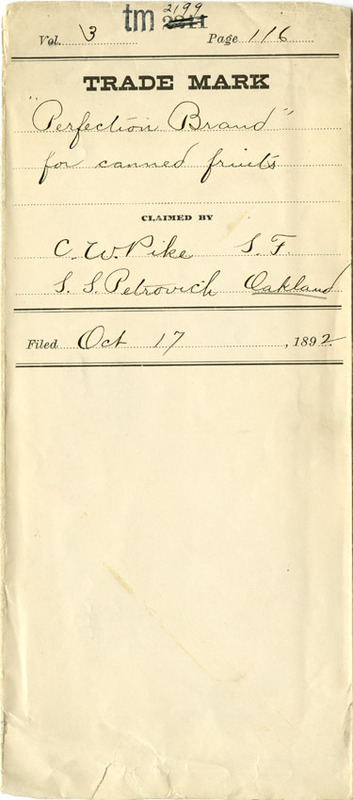 2199
tm 2211
Vol. 13 Page 116
TRADE MARK
"Perfection Brand"
for canned fruits
CLAIMED BY
C. W. Pike S. F.
S. S. Petrovich Oakland
Filed Oct 17, 1892